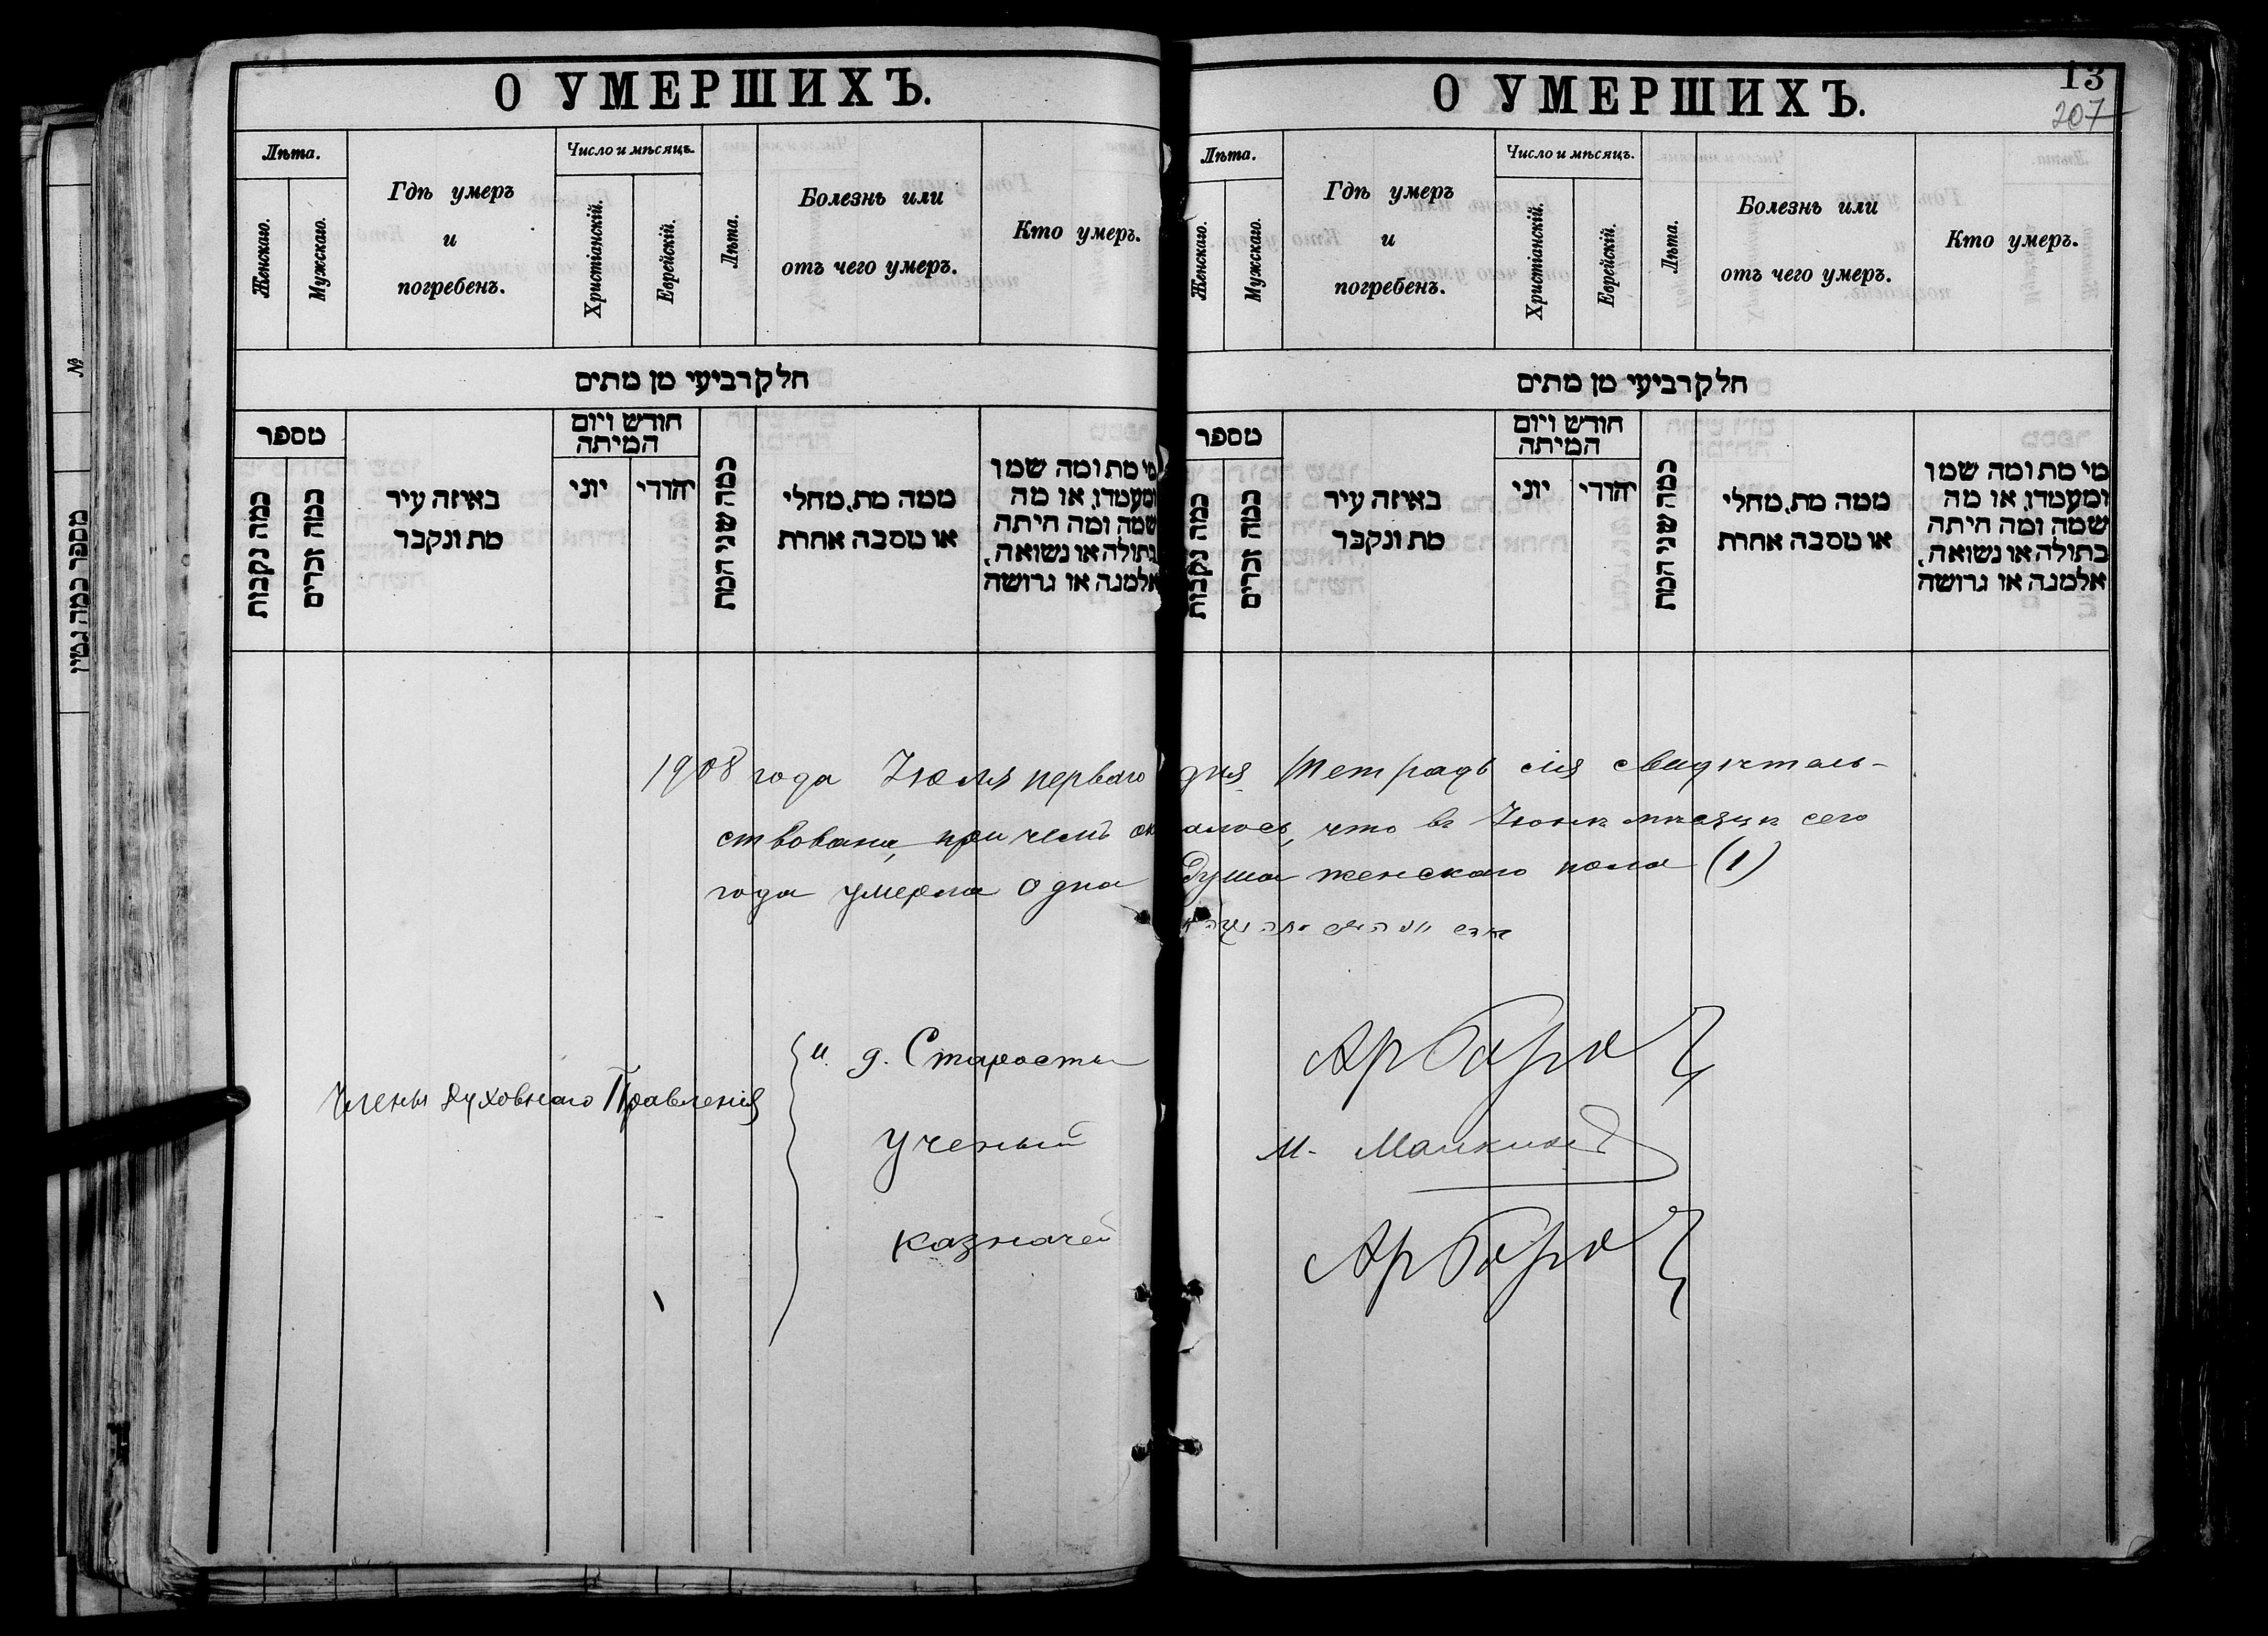 О УМЕРШИХЪ.
Лѣта.
Женскаго.
Мужскаго.
Гдѣ умеръ
и
погребенъ.
Число и мѣсяцъ.
Христіанскій.
Еврейскій.
Лѣта.
Болезнь или
отъ чего умеръ.
Кто умеръ.
חלק רביעי מן מתים
מספר
כמה נקבות
כמה זכרים
באיזה עיר
מת ונקבר
חודש ויום
המיתה
יוני
יהודי
כמה שני המת
ממה מת, מחלי
או מסבה אחרת
מי מת ומה שמו
ומעמדו, או מה
שמה ומה היתה
בתולה או נשואה,
אלמנה או גרושה
О УМЕРШИХЪ.
13
207
Лѣта.
Женскаго.
Мужскаго.
Гдѣ умеръ
и
погребенъ.
Число и мѣсяцъ.
Христіанскій.
Еврейскій.
Лѣта.
Болезнь или
отъ чего умеръ.
Кто умеръ.
חלק רביעי מן מתים
מספר
כמה נקבות
כמה זכרים
באיזה עיר
מת ונקבר
חודש ויום
המיתה
יוני
יהודי
כמה שני המת
ממה מת, מחלי
או מסבה אחרת
מי מת ומה שמו
ומעמדו, או מה
שמה ומה היתה
בתולה או נשואה,
אלמנה או גרושה
1908 года Іюля перваго дня Тетрадь сія свидѣтель-
ствована, при чемъ оказалось, что въ Іюнѣ мѣсяцѣ сего
года умерла одна душа женскаго пола (1)
Члены Духовнаго Правленія
и. д. Старосты
Ученый
Казначей
М.
№
מספר כמה גטין